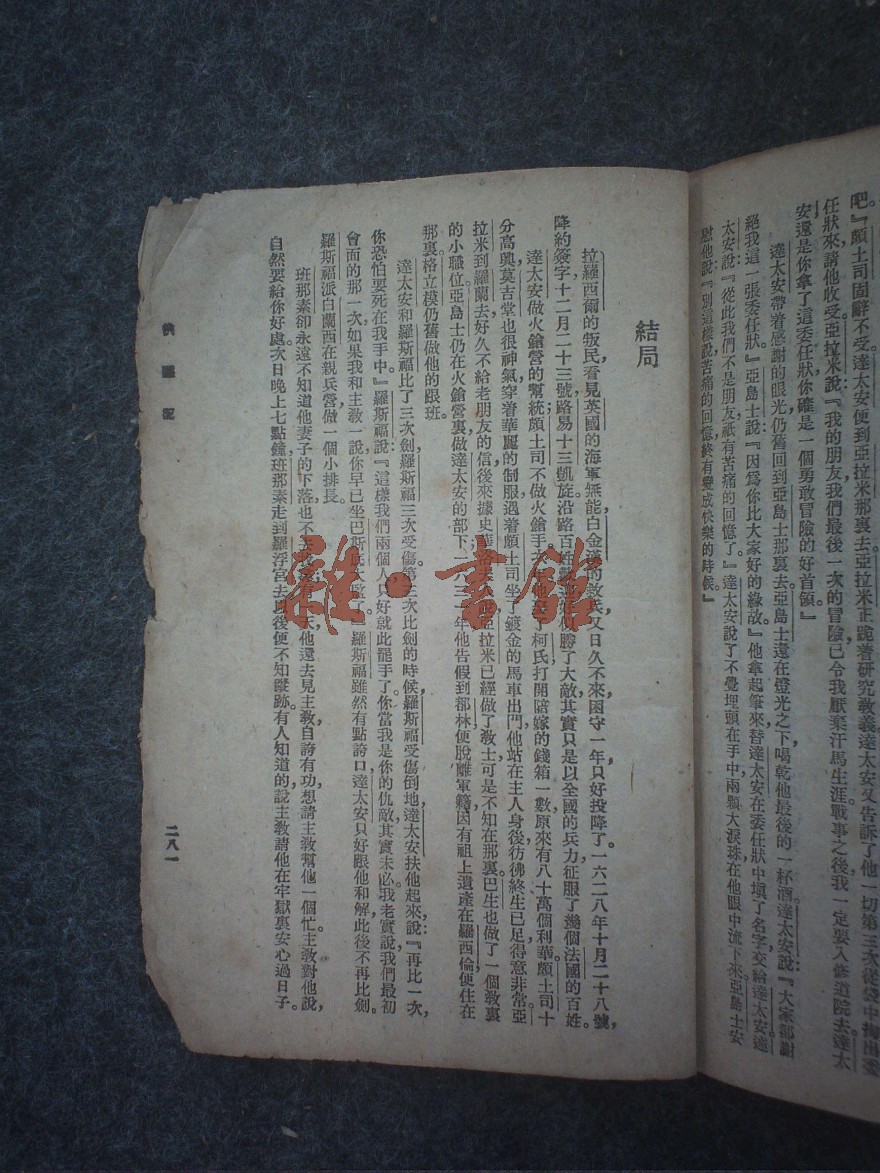 吧。』頗土司固辭不受。達太安便到亞拉米那裏去。亞拉米正跪着研究教義。達太安又告訴了他一切。第三次從袋中掏出委
任狀來請他收受。亞拉米說：『我的朋友，我們最後一次的冒險已令我厭棄汗馬生涯。戰事之後，我一定要入修道院去。達太
安，還是你拿了這委任狀，你確是一個勇敢冒險的好首領。』
達太安帶着感謝的眼光仍舊回到亞島士那裏去。亞島士還在燈光之下喝乾他最後的一杯酒。達太安說：『大家都謝
絕我這一張委任狀。』亞島士說：『因為你比大家好的緣故。』他拿起筆來替達太安在委任狀中填了名字交給達太安。達
太安說：『從此我們不是朋友，祇有苦痛的回憶了。』達太安說了不覺埋頭在手中，兩顆大淚珠在他眼中流下來。亞島士安
慰他說：『別這樣說，苦痛的回憶終有變成快樂的時候。』
結局
拉羅西爾的叛民看見英國的海軍無能，白金漢的救兵又日久不來，困守一年，只好投降了。一六二八年十月二十八號，
降約簽字。十二月二十三號，路易十三凱旋，沿路百姓歡迎，好似勝了大敵，其實只是以全國的兵力征服了幾個法國的百姓。
達太安做火鎗營的幫統。頗土司不做火鎗手，柯氏打開陪嫁的錢箱一數，原來有八十萬個利華。頗土司十
分高興。莫吉堂也很神氣，穿着華麗的制服，遇着頗土司坐了鍍金的馬車出門，他站在主人身後，彷彿終生已足，得意非常。亞
拉米到羅蘭去，好久不給老朋友的信，後來據史華洛夫人說，亞拉米已經做了教士，可是不知在那裏。巴生也做了一個教裏
的小職位。亞島士仍在火鎗營裏做達太安的部下。一六三一年他告假到都林，便脫離軍籍，因有祖上遺產在羅西倫，便住在
那裏。格立模仍舊做他的跟班。
達太安和羅斯福比了三次劍，羅斯福三次受傷。第三次比劍的時候，羅斯福受傷倒地，達太安扶他起來說：『再比一次，
你恐怕要死在我手中。』羅斯福說：『這樣我們兩個人只好就此罷手了。你當我是你的仇敵，其實未必。我老實說，我們最初
會面的那一次，如果我和主教一說，你早已坐巴斯底大監了。』羅斯福雖然有點誇口，達太安只好跟他和解，此後不再比劍。
羅斯福派白蘭西在親兵營做一個小排長。
班那素卻永遠不知道他妻子的下落，也不去找，天他還去見主教，自誇有功，想請主教幫他一個忙。主教對他說，
自然要給你好處。次日晚上七點鐘，班那素走到羅浮宮去，以後便不知蹤跡。有人知道的，說主教請他在牢獄裏安心過日子。
俠隱記
二八一
雅·書館